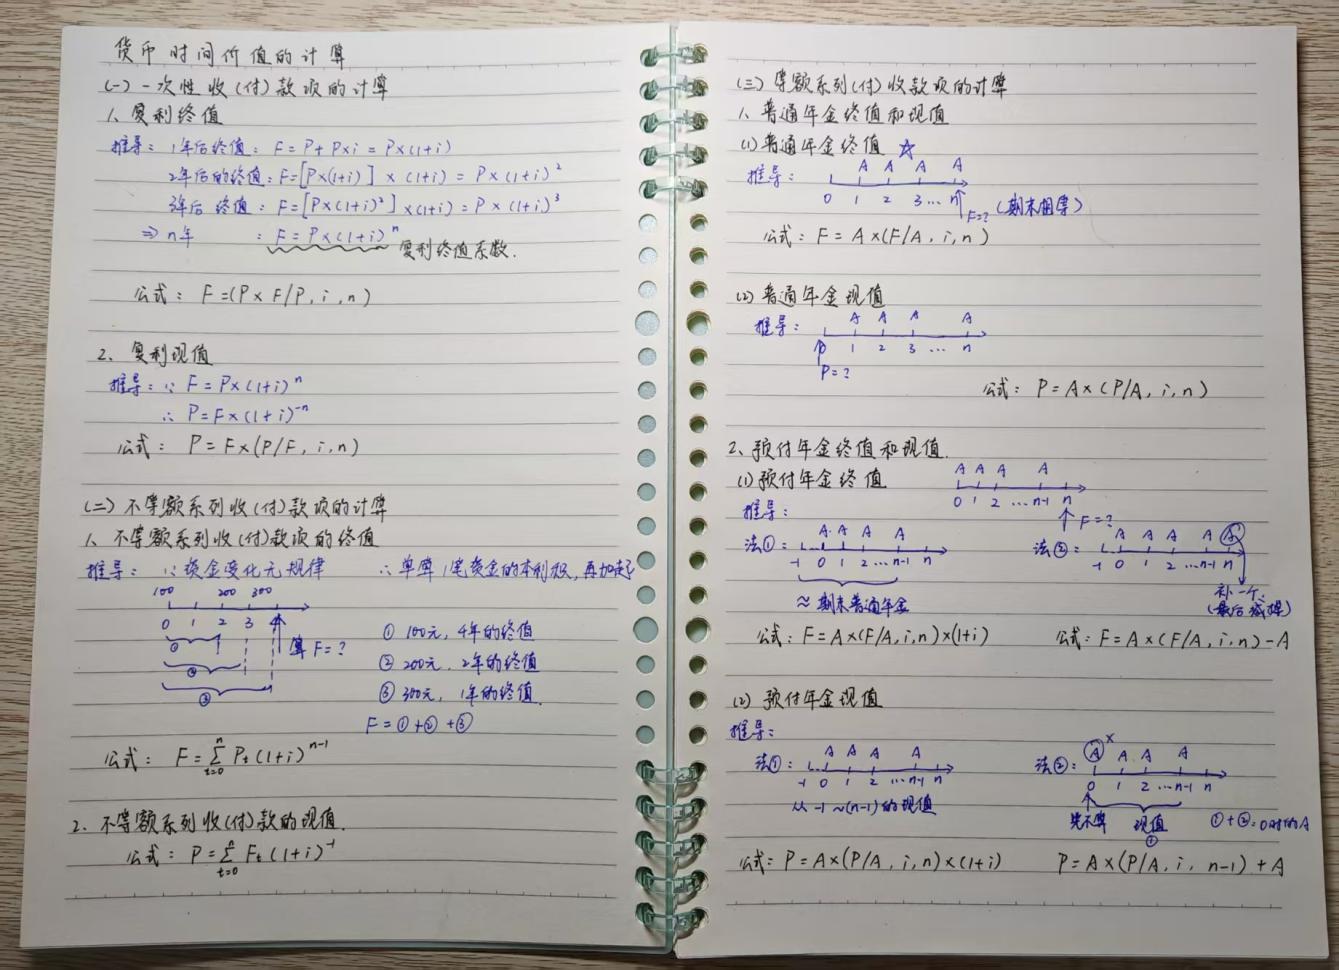 货币时间价值的计算
(一)一次性收(付)款项的计算
1、复利终值
推导：1年后终值：F=P+P×i=P×(1+i)
2年后的终值：F=[P×(1+i)]×(1+i)=P×(1+i)²
3年后 终值：F=[P×(1+i)²]×(1+i)=P×(1+i)³
⇒n年：F=P×(1+i)ⁿ
复利终值系数.
公式：F=(P×F/P,i,n)
2、复利现值
推导：∵F=P×(1+i)ⁿ
∴P=F×(1+i)⁻ⁿ
公式：P=F×(P/F,i,n)
(二)不等额系列收(付)款项的计算
1、不等额系列收(付)款项的终值
推导：∵资金变化无规律 ∴单算1笔资金的本利和,再加起
100 200 300
0 1 2 3 4
① ② ③
算F=?
① 100元,4年的终值
② 200元,2年的终值
③ 300元,1年的终值.
F=①+②+③
公式：F=∑ⁿₜ₌₀Pₜ(1+i)ⁿ⁻¹
2、不等额系列收(付)款的现值.
公式：P=∑ⁿₜ₌₀Fₜ(1+i)⁻¹
(三)等额系列(付)收款项的计算
1、普通年金终值和现值
(1)普通年金终值 ☆
推导：
A A A A
0 1 2 3…n
F=? (期末固算)
公式：F=A×(F/A,i,n)
(2)普通年金现值
推导：
A A A A
0 1 2 3 … n
P=?
公式：P=A×(P/A,i,n)
2、预付年金终值和现值.
(1)预付年金终值
A A A A
0 1 2 …n-1 n
F=?
推导：
法①：
A A A A
-1 0 1 2…n-1 n
≈期末普通年金
公式：F=A×(F/A,i,n)×(1+i)
法②：
A A A A A
-1 0 1 2…n-1 n
补一个、
(最后减掉)
公式：F=A×(F/A,i,n)-A
(2)预付年金现值
推导：
法①：
A A A A
-1 0 1 2…n-1 n
从-1~(n-1)的现值
公式：P=A×(P/A,i,n)×(1+i)
法②：
A × A A A
0 1 2…n-1 n
先不算 现值
①
①+②=0时的A
P=A×(P/A,i,n-1)+A